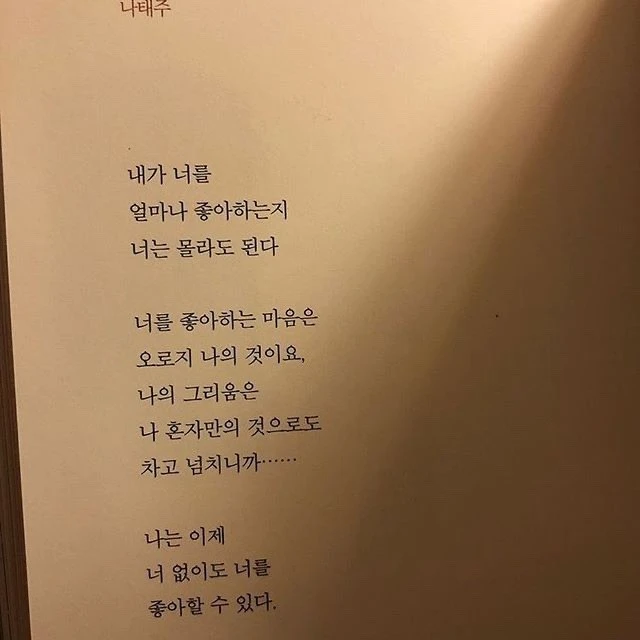 나태주
내가 너를
얼마나 좋아하는지
너는 몰라도 된다
너를 좋아하는 마음은
오로지 나의 것이요,
나의 그리움은
나 혼자만의 것으로도
차고 넘치니까……
나는 이제
너 없이도 너를
좋아할 수 있다.